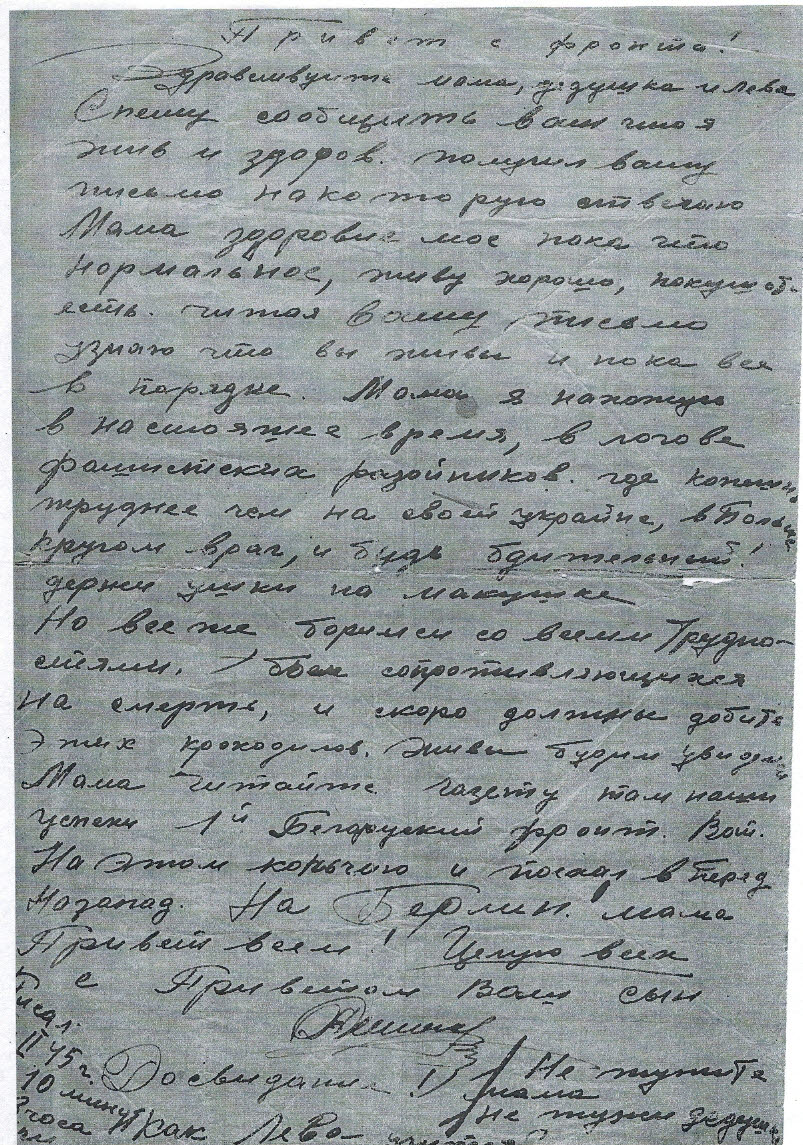 Привет с фронта!
Здравствуйте мама, дедушка и лева
Спешу сообщить вам что я
жив и здоров. получил вашу
письмо на которую отвечаю
Мама здоровие мое пока что
нормальное, живу хорошо, покушать
есть. читая вашу письмо
узнаю что вы живы и пока все
в порядке. Мама я нахожус
в настояшее время, в логове
фашистских разойников. где конешно
труднее чем на своей украйне, в Польше
кругом враг, и будь бдительный!
держи ушки на макушке
Но все же боримся со всеми Трудно-
стями, бьем сопротивляющихся
на смерть, и скоро должны добить
этих крокодилов. живы будим увидем
Мама читайте газету там наши
успехи 1й Белоруский фронт.
На этом коньчаю и поехал в перед
Назапад. На Берлин! мама
Привет всем! Целую всех
с Приветом Ваш сын
Досвидание!
Не тужите
мама
Не тужи дедушка
Как Лева учится?
Писал
II 45 г.
10 минут
часа